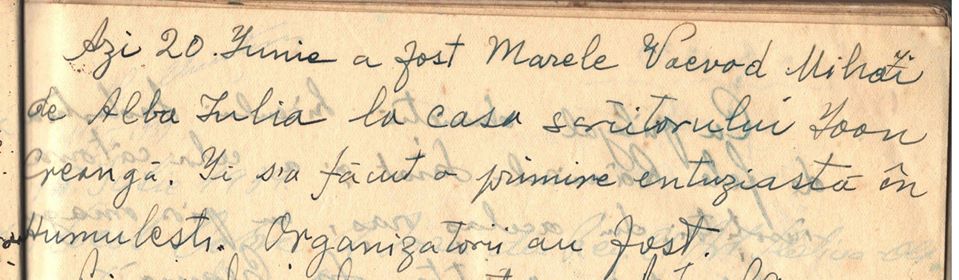 Azi 20 Iunie a fost Marele Voevod Mihai
de Alba Iulia la casa scriitorului Ioan
Creangă. Ii s'a făcut o primire entuziastă în
Humulești. Organizatorii au fost.